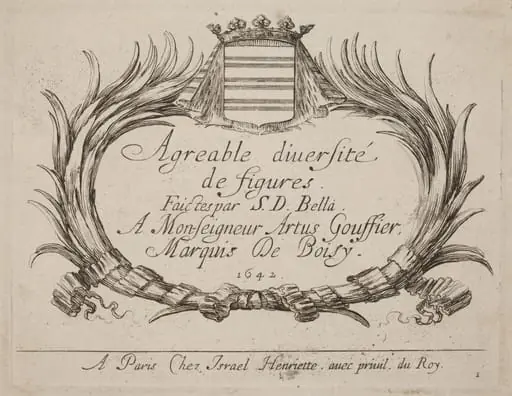 Agreable diuersité
de figures.
Faictes par S. D. Bella.
A Monseigneur Artus Gouffier,
Marquis De Boisy.
1642.
A Paris Chez Israel Henriette. auec priuil. du Roy.
1